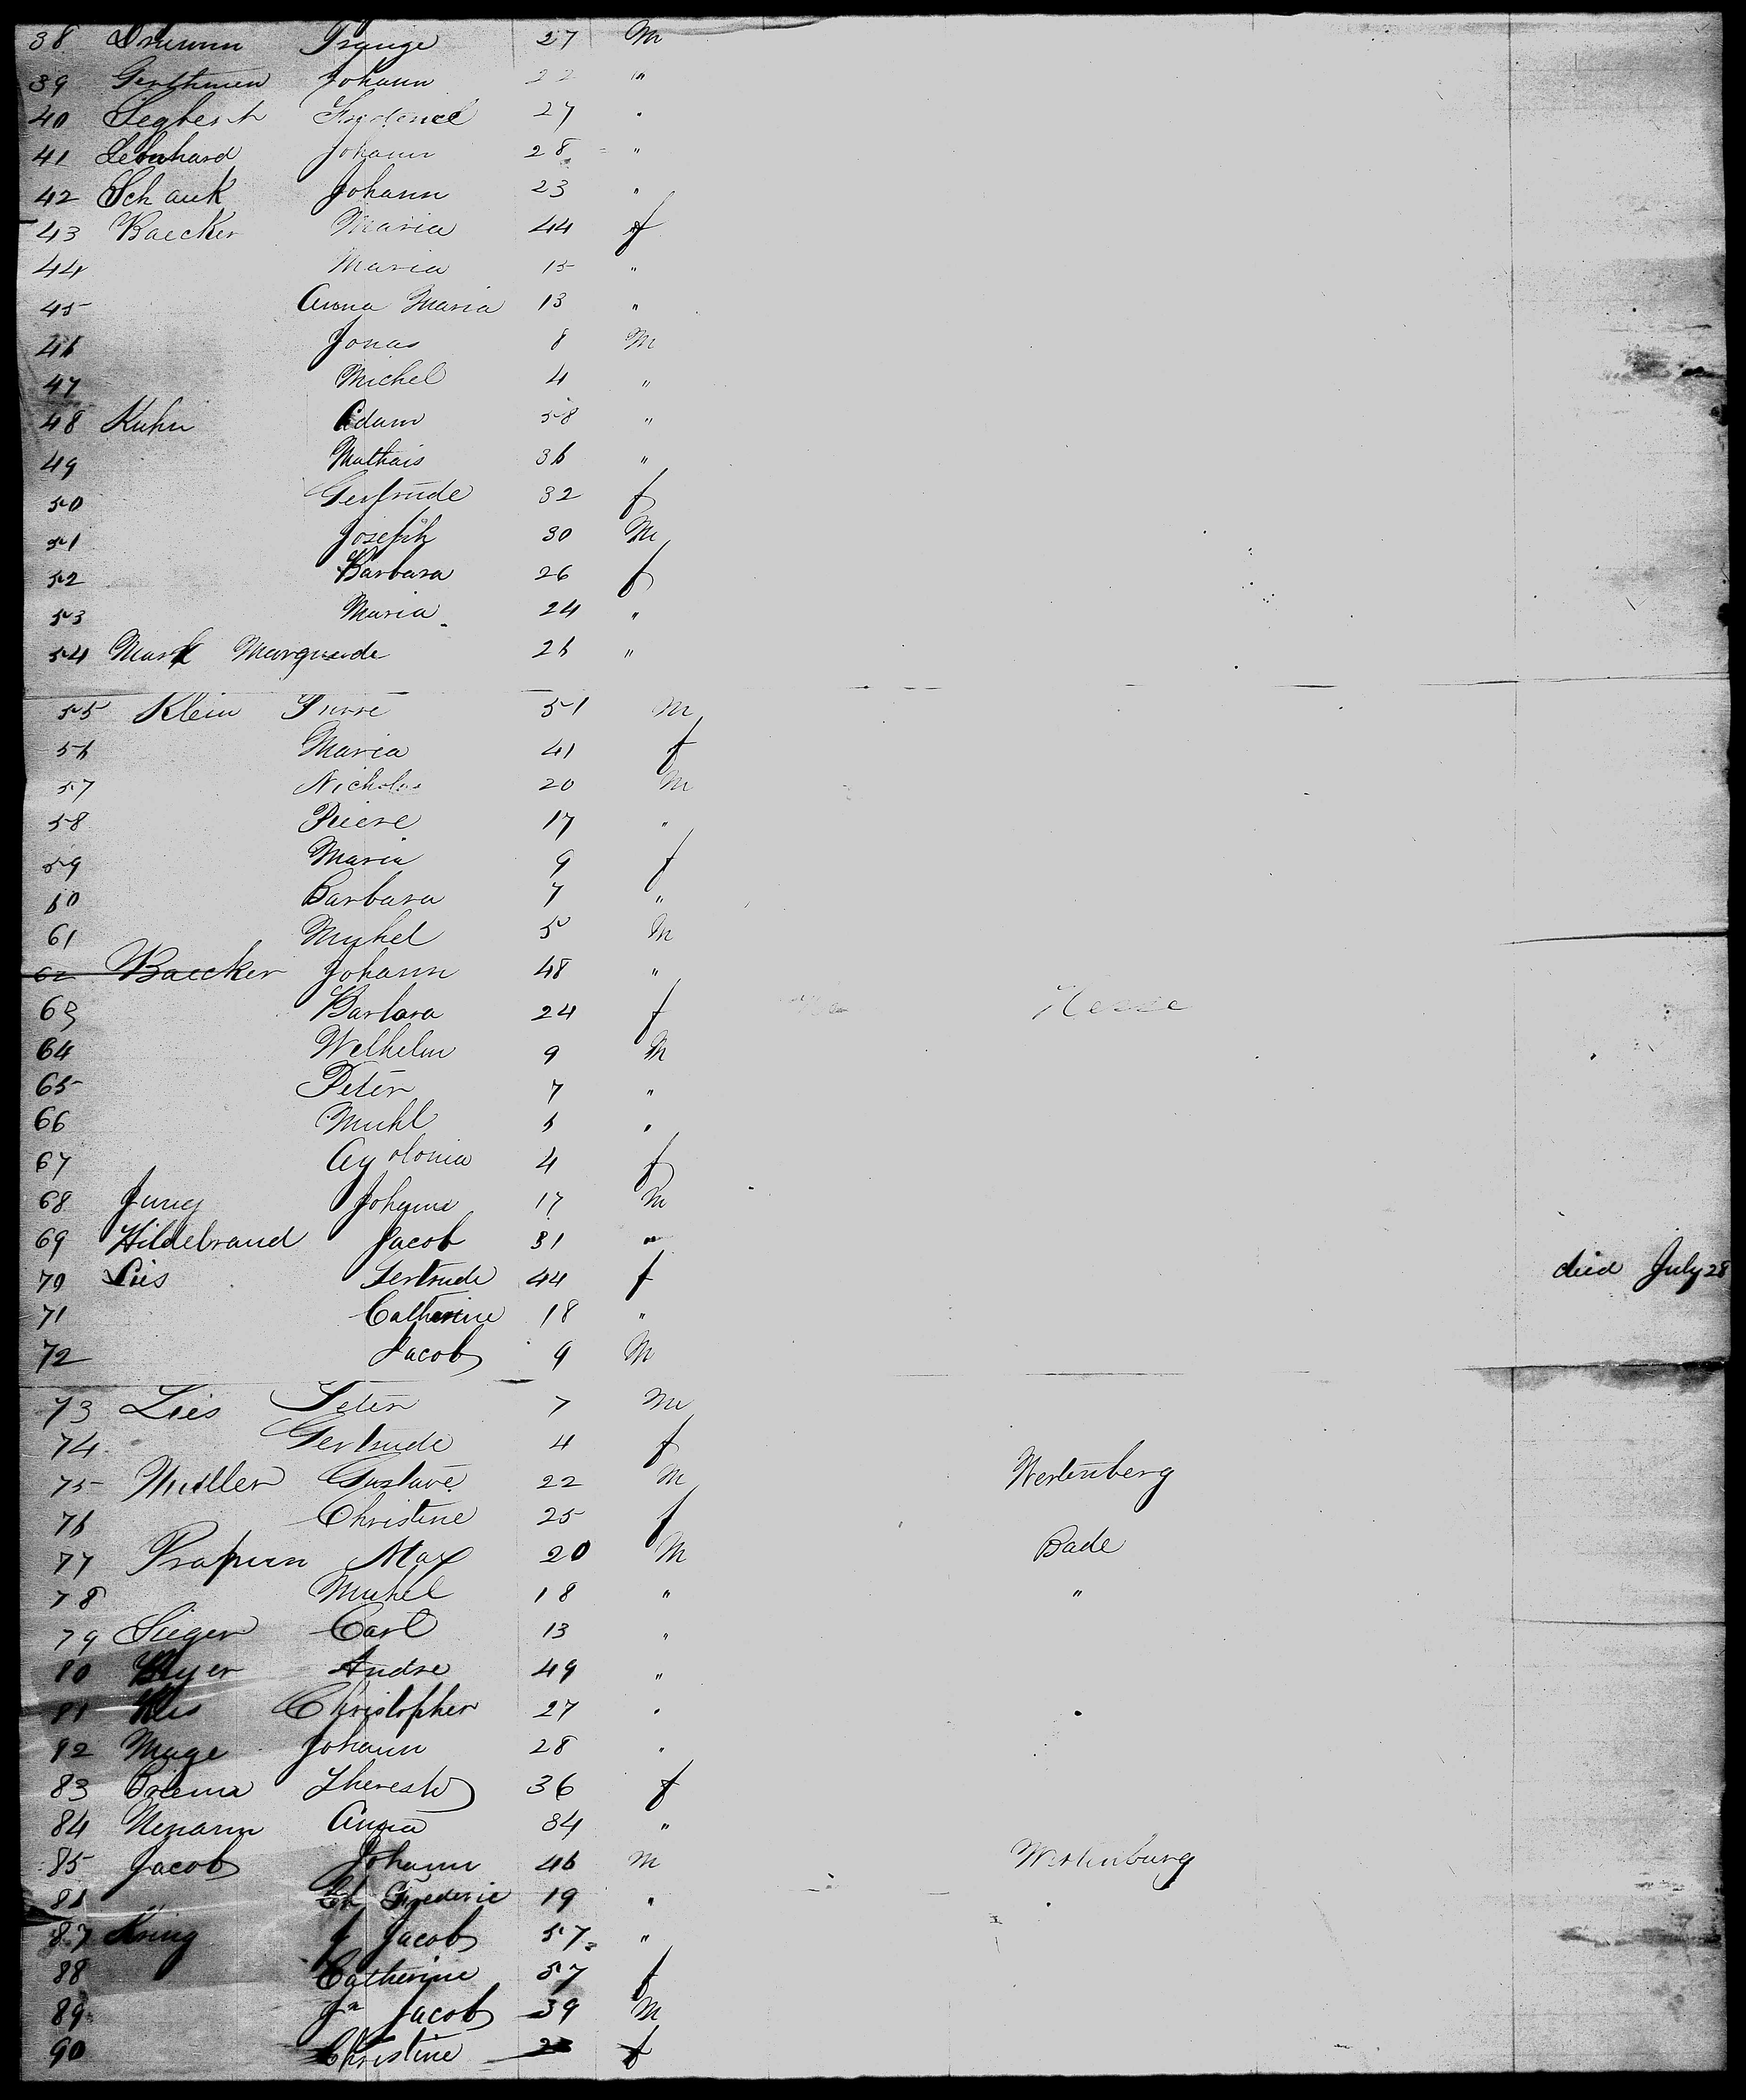 38 27 M
39 Johann 22 "
40 Segbert 27 "
41 Leonhard Johann 28 "
42 Schauk Johann 23 "
43 Baecker Maria 44 f
44 Maria 15 "
45 Anna Maria 13 "
46 Jonas 8 M
47 Michel 4 "
48 Kuhn Adam 58 "
49 Mathais 36 "
50 Gertrude 32 f
51 Joseph 30 M
52 Barbara 26 f
53 Maria 24 "
54 Marx 26 "
55 Klein 51 M
56 Maria 41 f
57 Nicholas 20 M
58 Piere 17 "
59 Maria 9 f
60 Barbara 7 "
61 Michel 5 M
62 Baecker Johann 48 "
63 Barbara 24 f Hesse
64 Welhelm 9 M
65 Peter 7 "
66 Michl 6 "
67 Apolonia 4 f
68 Jung Johann 17 M
69 Hildebrand Jacob 31 "
70 Lies Gertrude 44 f died July 28
71 Catherine 18 "
72 Jacob 9 M
73 Lies Peter 7 M
74 Gertrude 4 f
75 Muller Gustave 22 M Wertenberg
76 Christine 25 f
77 Max 20 M Bade
78 Michel 18 " "
79 Sieger Carl 13 "
80 Andre 49 "
81 Christopher 27 "
82 Mage Johann 28 "
83 36 f
84 Anna 34 "
85 Jacob Johann 46 M Wertenburg
86 Ch Frederic 19 "
87 Jacob 57 "
88 Catherine 57 f
89 Jn Jacob 39 M
90 Christine f